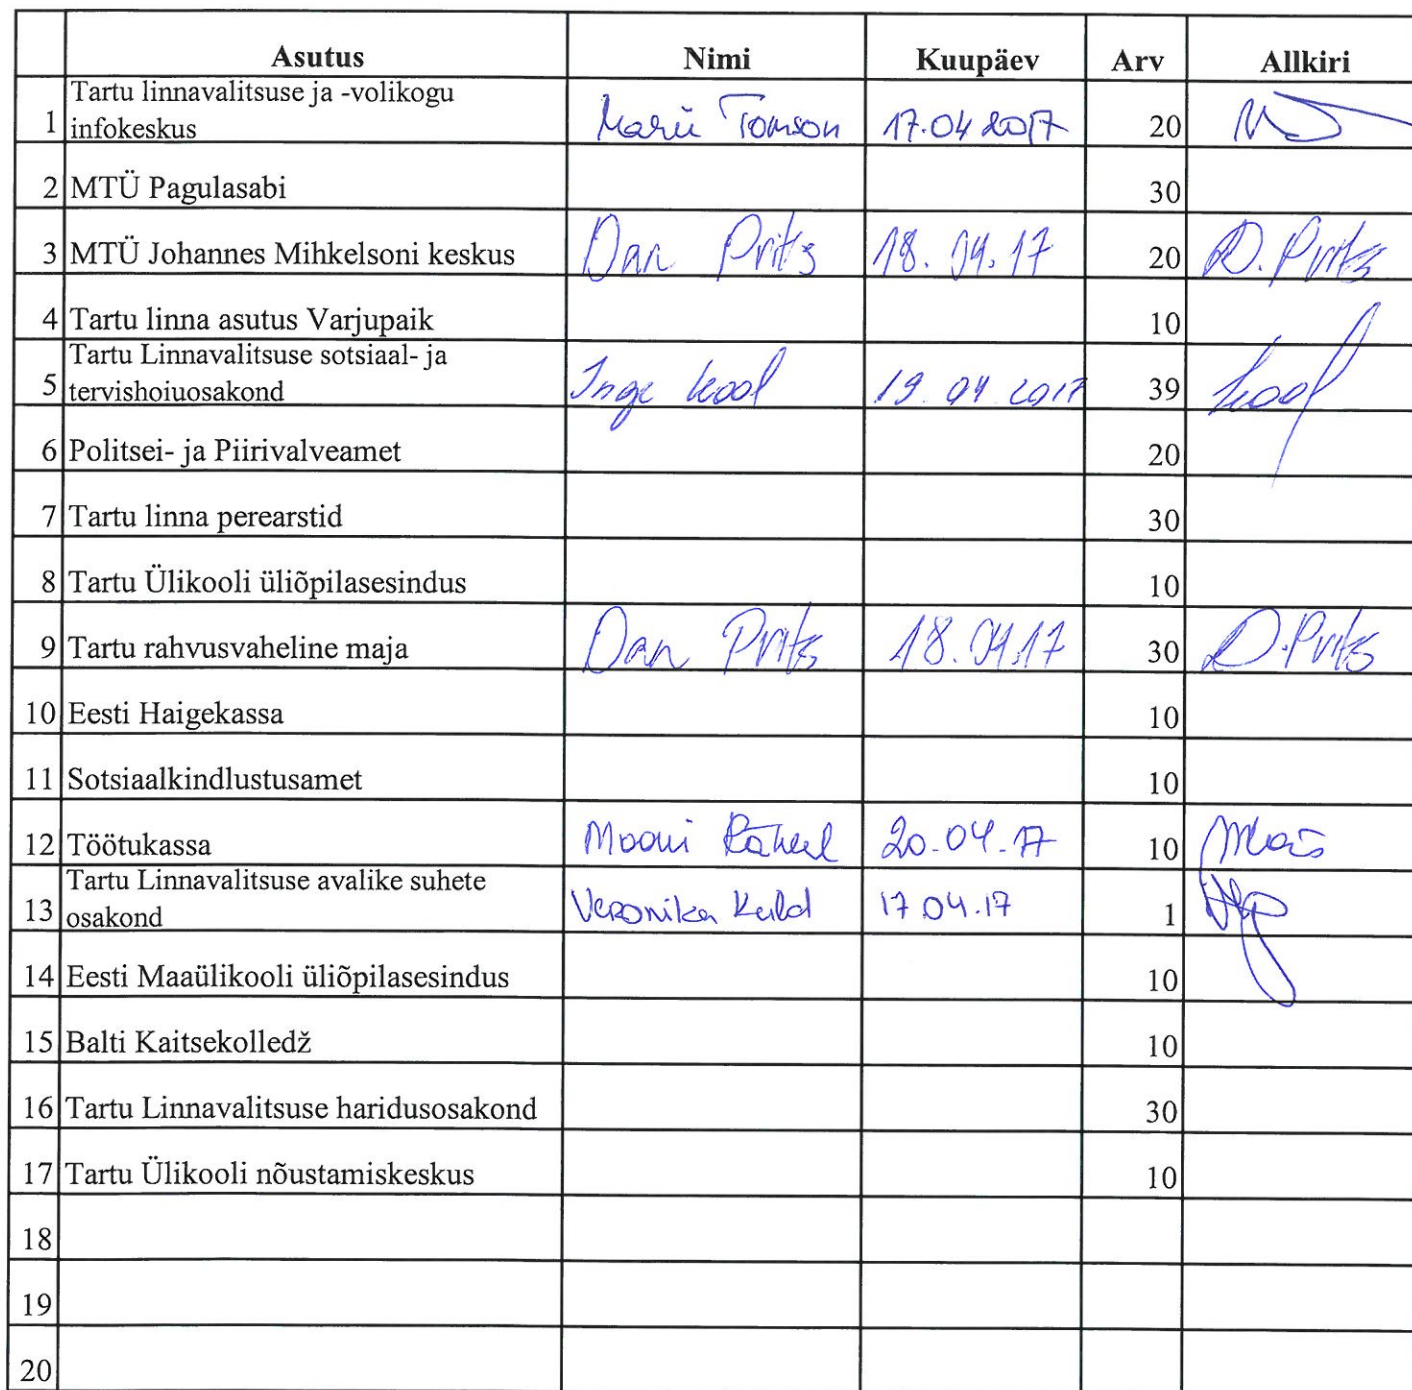 Asutus Nimi Kuupäev Arv Allkiri
Tartu linnavalitsuse ja -volikogu
1 infokeskus Marii Tomson 17.04 2017 20
2 MTÜ Pagulasabi 30
3 MTÜ Johannes Mihkelsoni keskus Dan Prits 18.04.17 20 D. Prits
4 Tartu linna asutus Varjupaik 10
Tartu Linnavalitsuse sotsiaal- ja
5 tervishoiuosakond Inge Kool 19 04 2017 39 Kool
6 Politsei- ja Piirivalveamet 20
7 Tartu linna perearstid 30
8 Tartu Ülikooli üliõpilasesindus 10
9 Tartu rahvusvaheline maja Dan Prits 18.04.17 30 D. Prits
10 Eesti Haigekassa 10
11 Sotsiaalkindlustusamet 10
12 Töötukassa 20.04.17 10
Tartu Linnavalitsuse avalike suhete
13 osakond Veronika 17 04.17 1
14 Eesti Maaülikooli üliõpilasesindus 10
15 Balti Kaitsekolledž 10
16 Tartu Linnavalitsuse haridusosakond 30
17 Tartu Ülikooli nõustamiskeskus 10
18
19
20